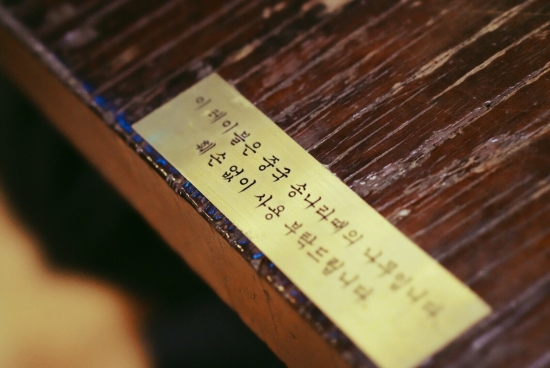 이 테이블은 중국 송나라때의 나무입니다.
훼손없이 사용 부탁드립니다.